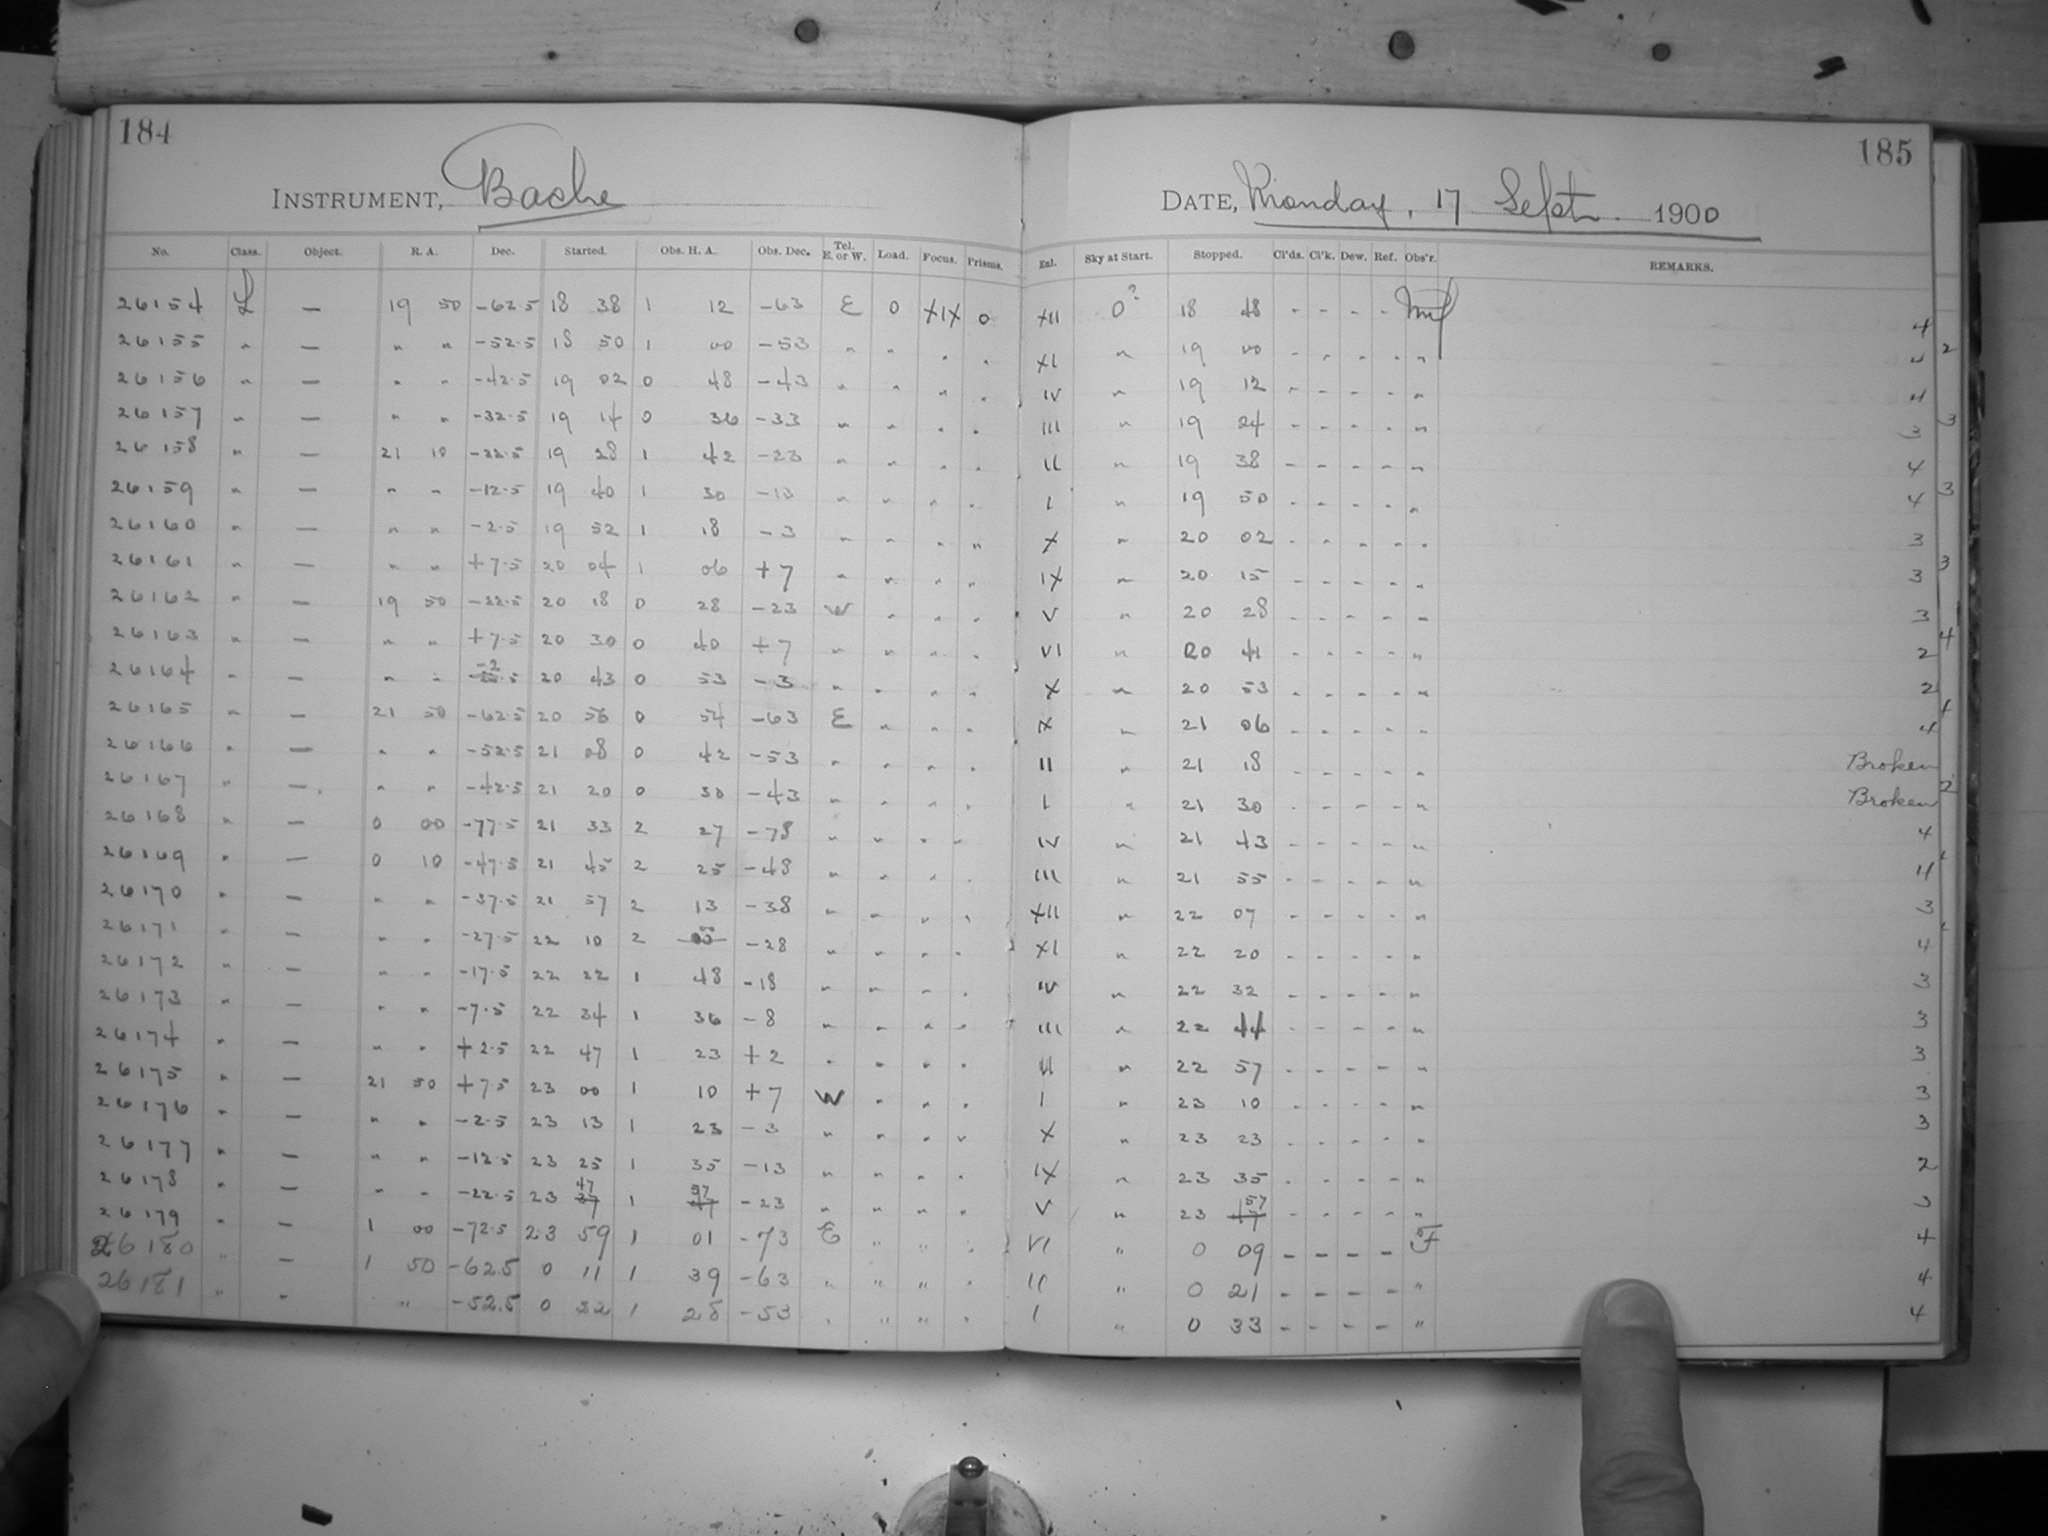 184
185
INSTRUMENT, Bache
DATE, Monday, 17 Sept. 1900
No. Class. Object. R. A. Dec. Started. Obs. H. A. Obs. Dec. Tel. E. or W. Load. Focus. Prisms. Enl. Sky at Start. Stopped. Cl'ds. Cl'k. Dew. Ref. Obs'r. REMARKS.
26154 L — 19 50 -62.5 18 38 1 12 -63 E 0 XIX 0 XII 0? 18 48 - - - - 4
26155 " — " " -52.5 18 50 1 00 -53 " " " " XI " 19 00 - - - - "
26156 " — " " -42.5 19 02 0 48 -43 " " " " IV " 19 12 - - - - " 4
26157 " — " " -32.5 19 14 0 36 -33 " " " " III " 19 24 - - - - " 3
26158 " — 21 10 -22.5 19 28 1 42 -23 " " " " II " 19 38 - - - - " 4
26159 " — " " -12.5 19 40 1 30 -13 " " " " I " 19 50 - - - - " 4
26160 " — " " -2.5 19 52 1 18 -3 " " " " X " 20 02 - - - - " 3
26161 " — " " +7.5 20 04 1 06 +7 " " " " IX " 20 15 - - - - " 3
26162 " — 19 50 -22.5 20 18 0 28 -23 W " " " V " 20 28 - - - - " 3
26163 " — " " +7.5 20 30 0 40 +7 " " " " VI " 20 41 - - - - " 2
26164 " — " " -2.5 20 43 0 53 -3 " " " " X " 20 53 - - - - " 2
26165 " — 21 50 -62.5 20 56 0 54 -63 E " " " IX " 21 06 - - - - " 4
26166 " — " " -52.5 21 08 0 42 -53 " " " " II " 21 18 - - - - " Broken
26167 " — " " -42.5 21 20 0 30 -43 " " " " I " 21 30 - - - - " Broken
26168 " — 0 00 -77.5 21 33 2 27 -78 " " " " IV " 21 43 - - - - " 4
26169 " — 0 10 -47.5 21 45 2 25 -48 " " " " III " 21 55 - - - - " 4
26170 " — " " -37.5 21 57 2 13 -38 " " " " XII " 22 07 - - - - " 3
26171 " — " " -27.5 22 10 2 00 -28 " " " " XI " 22 20 - - - - " 4
26172 " — " " -17.5 22 22 1 48 -18 " " " " IV " 22 32 - - - - " 3
26173 " — " " -7.5 22 34 1 36 -8 " " " " III " 22 44 - - - - " 3
26174 " — " " +2.5 22 47 1 23 +2 " " " " II " 22 57 - - - - " 3
26175 " — 21 50 +7.5 23 00 1 10 +7 W " " " I " 23 10 - - - - " 3
26176 " — " " -2.5 23 13 1 23 -3 " " " " X " 23 23 - - - - " 3
26177 " — " " -12.5 23 25 1 35 -13 " " " " IX " 23 35 - - - - " 2
26178 " — " " -22.5 23 37 47 1 47 57 -23 " " " " V " 23 47 57 - - - - " 3
26179 " — 1 00 -72.5 23 59 1 01 -73 E " " " VI " 0 09 - - - - F 4
26180 " — 1 50 -62.5 0 11 1 39 -63 " " " " II " 0 21 - - - - " 4
26181 " - " -52.5 0 22 1 28 -53 " " " " I " 0 33 - - - - " 4